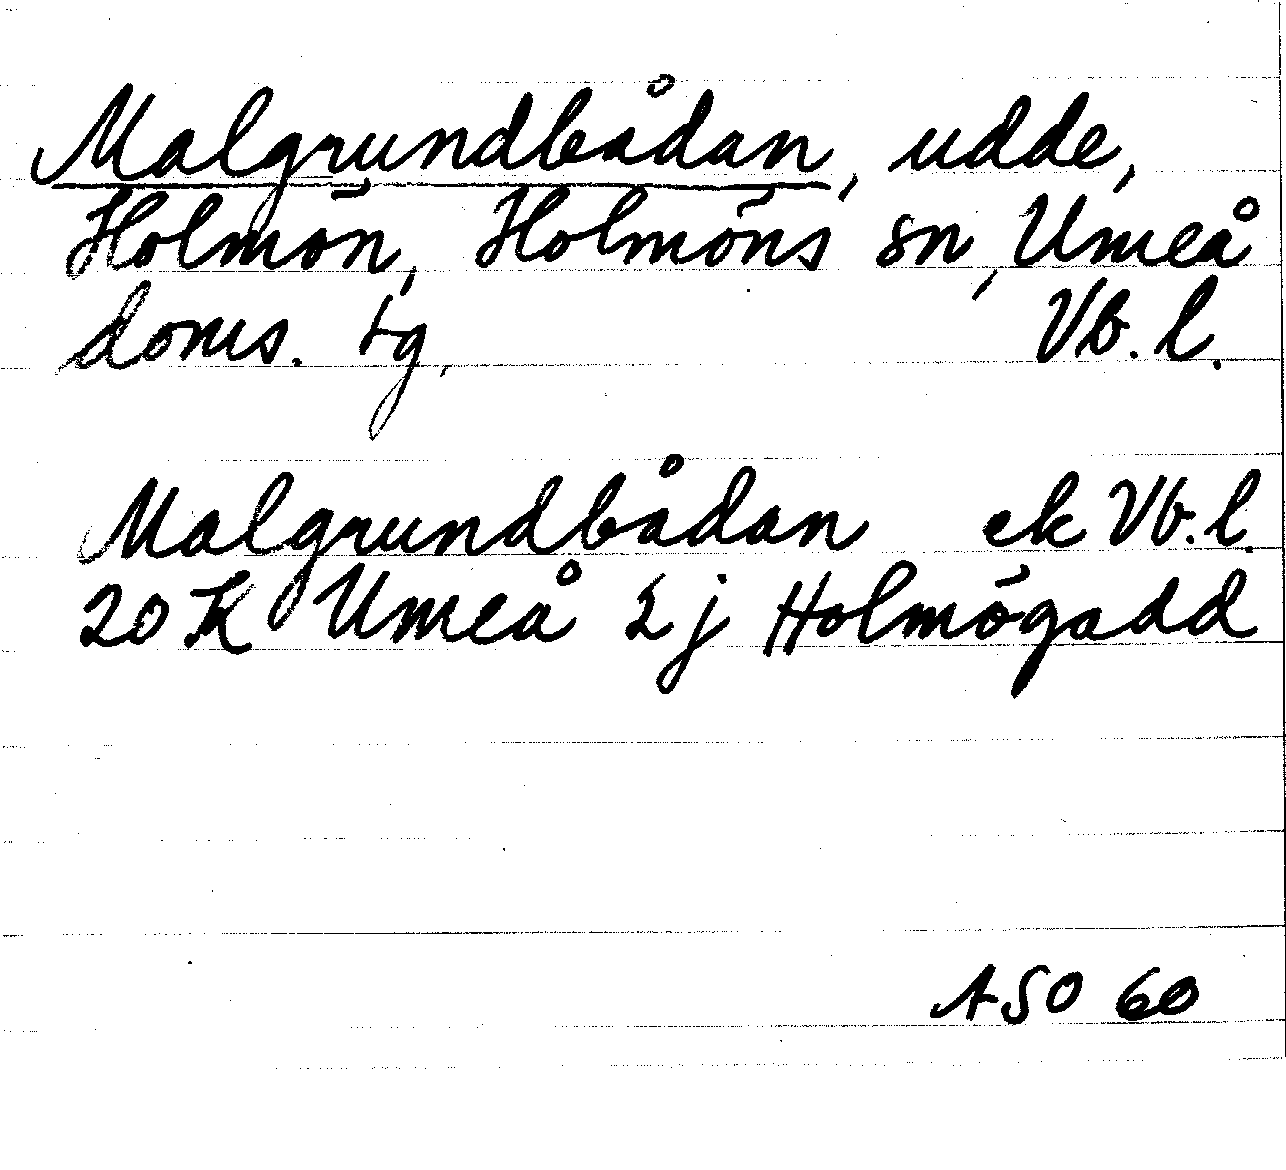 Malgrundbådan, udde,
Holmön, Holmöns sn, Umeå
doms. tg, Vb. l.
Malgrundbådan ek Vb. l.
20 K Umeå 2 j Holmögadd
ASO 60